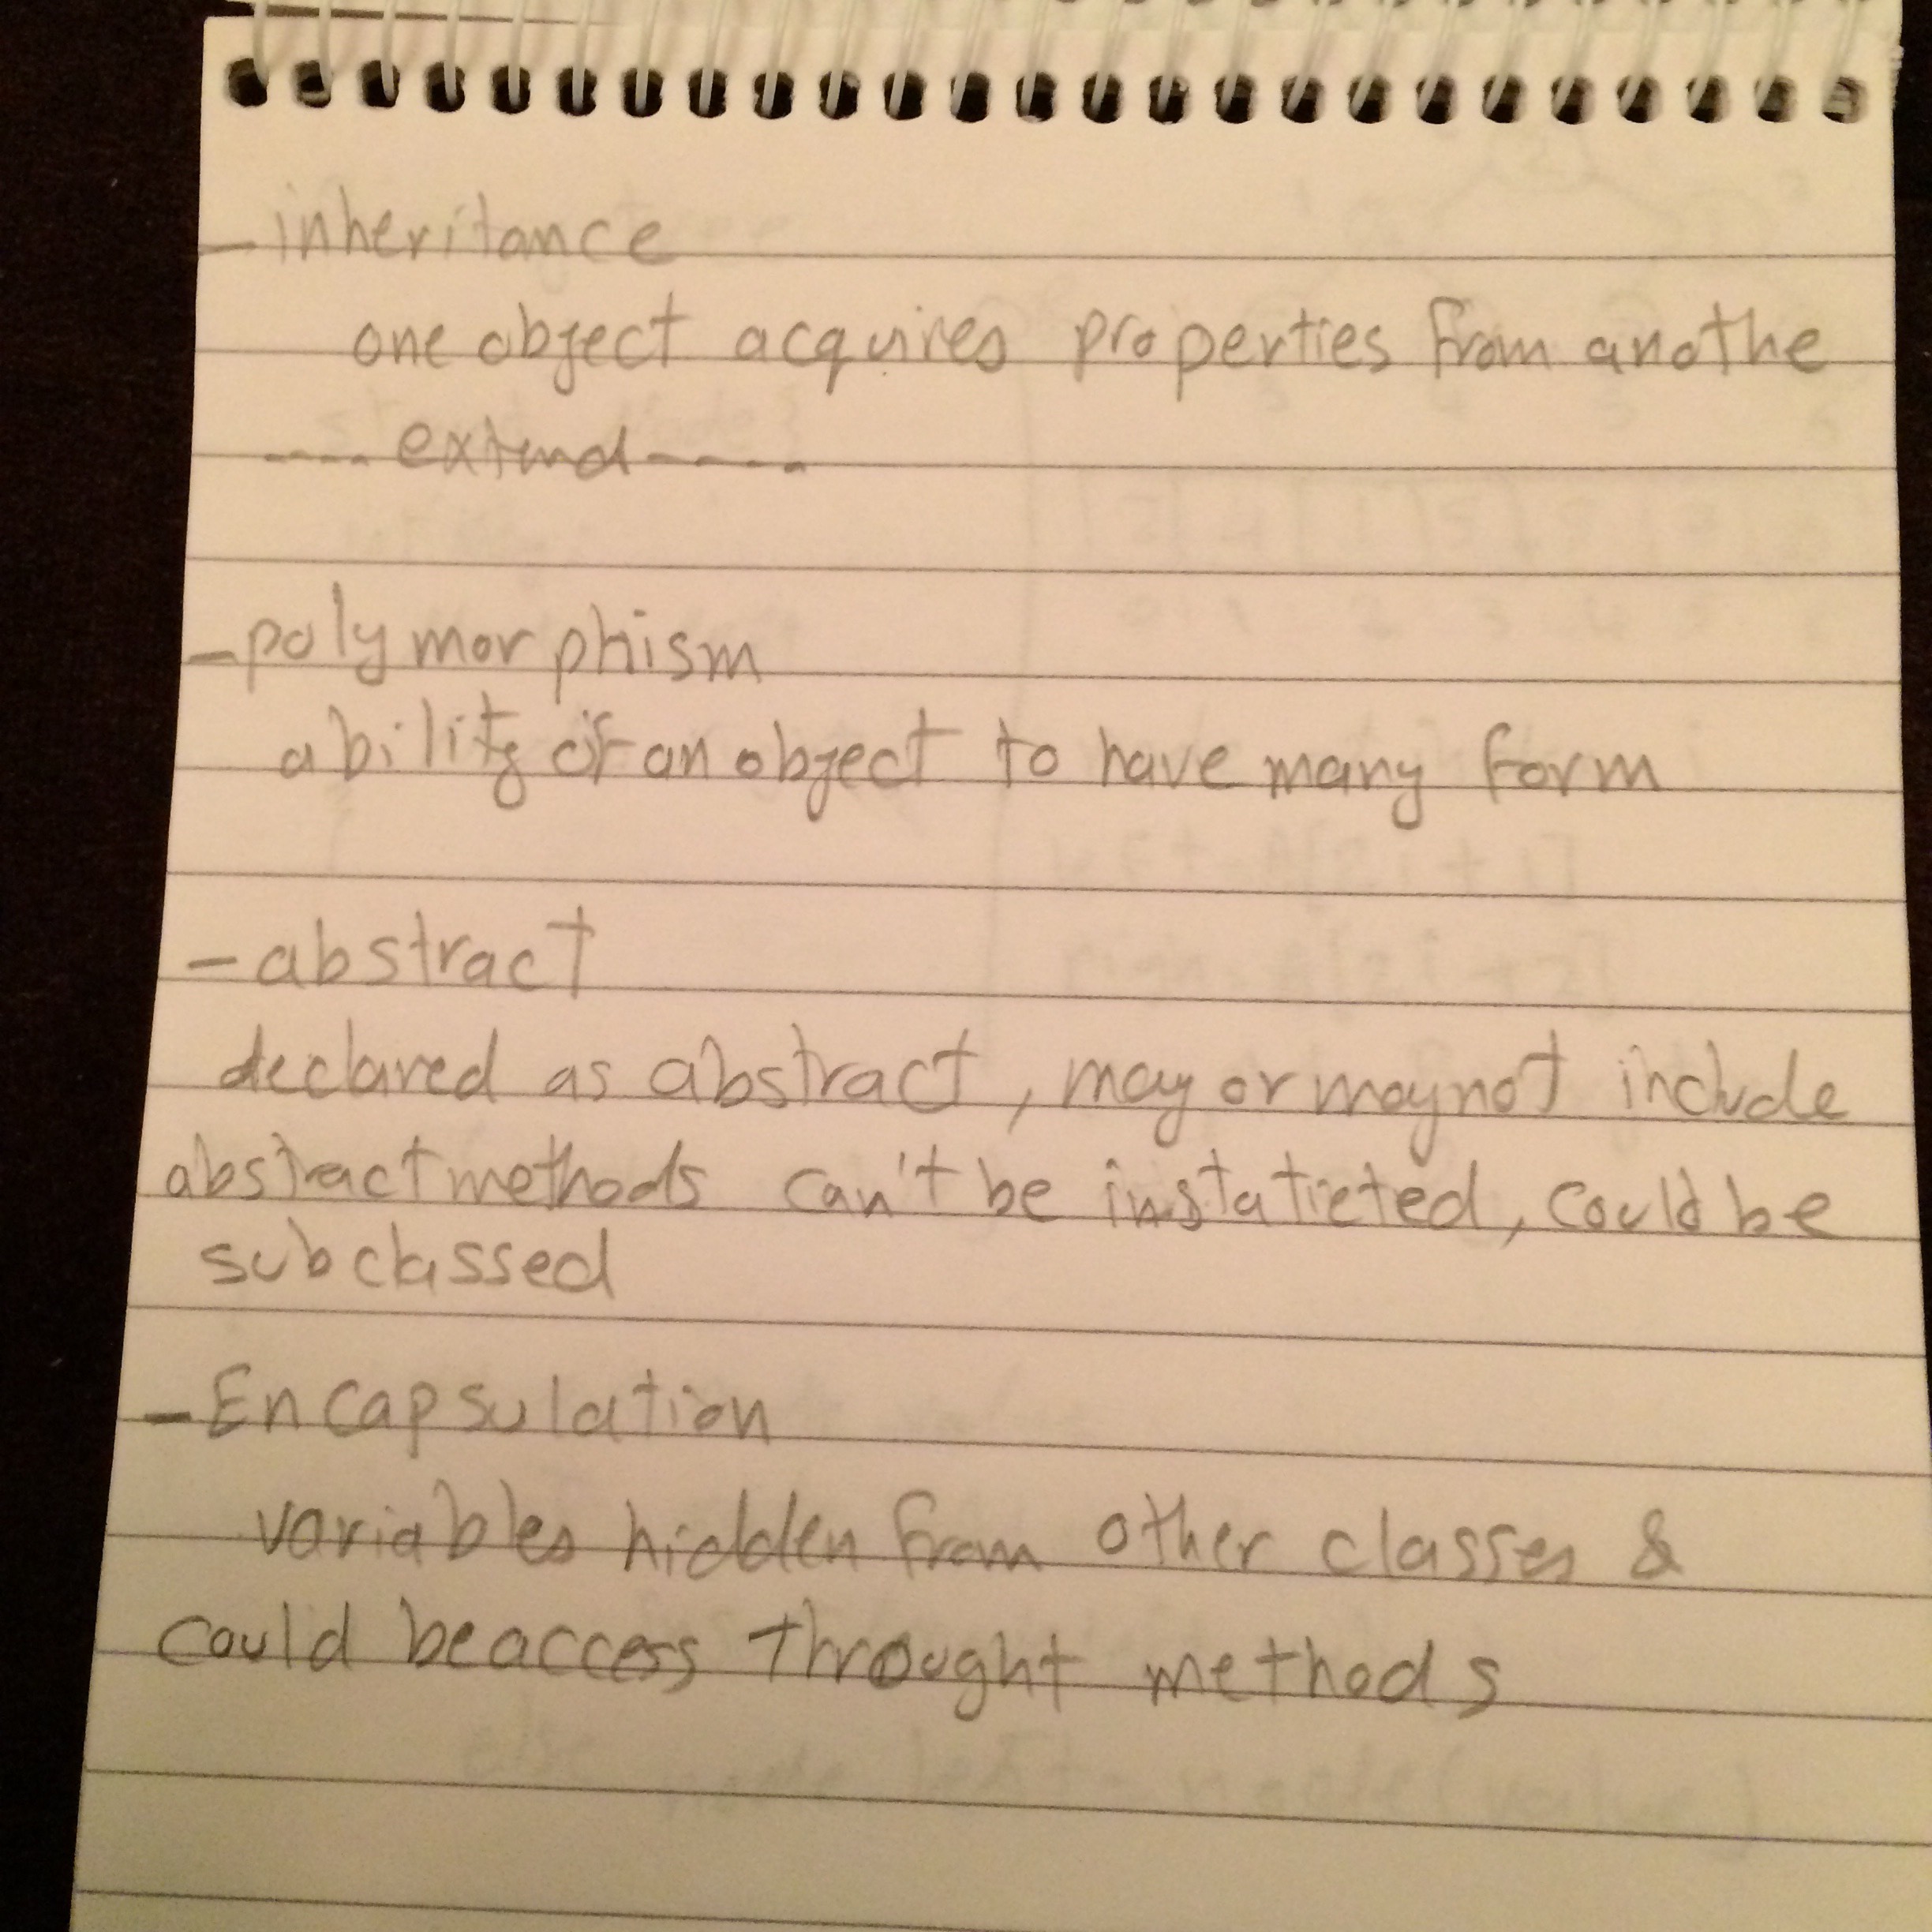 - inheritance
one object acquires properties from anothe
---- extend -----
- polymorphism
ability of an object to have many form
- abstract
declared as abstract, may or may not include
abstract methods can't be instaticted, could be
subclassed
- Encapsulation
variables hidden from other classes &
could be access throught methods